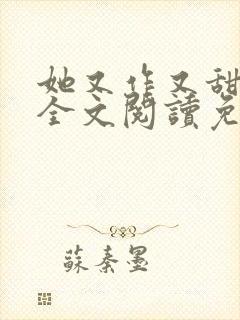 她又作又甜
全文閱讀免
蘇秦墨